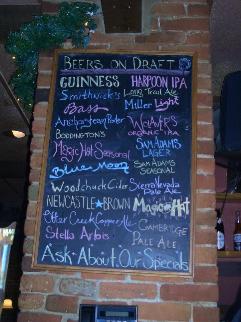 BEERS ON DRAFT
GUINNESS HARPOON IPA
Smithwick's Long Trail Ale
Bass Miller Light
Anchor Steam Porter WOLAVER'S
BODDINGTON'S ORGANIC IPA
Magic Hat Seasonal SAM ADAMS LAGER
Blue Moon SAM ADAMS SEASONAL
Woodchuck Cider Sierra Nevada Pale Ale
NEWCASTLE BROWN Magic Hat
Otter Creek Copper Ale CAMBRIDGE
Stella Artois PALE ALE
Ask About Our Specials